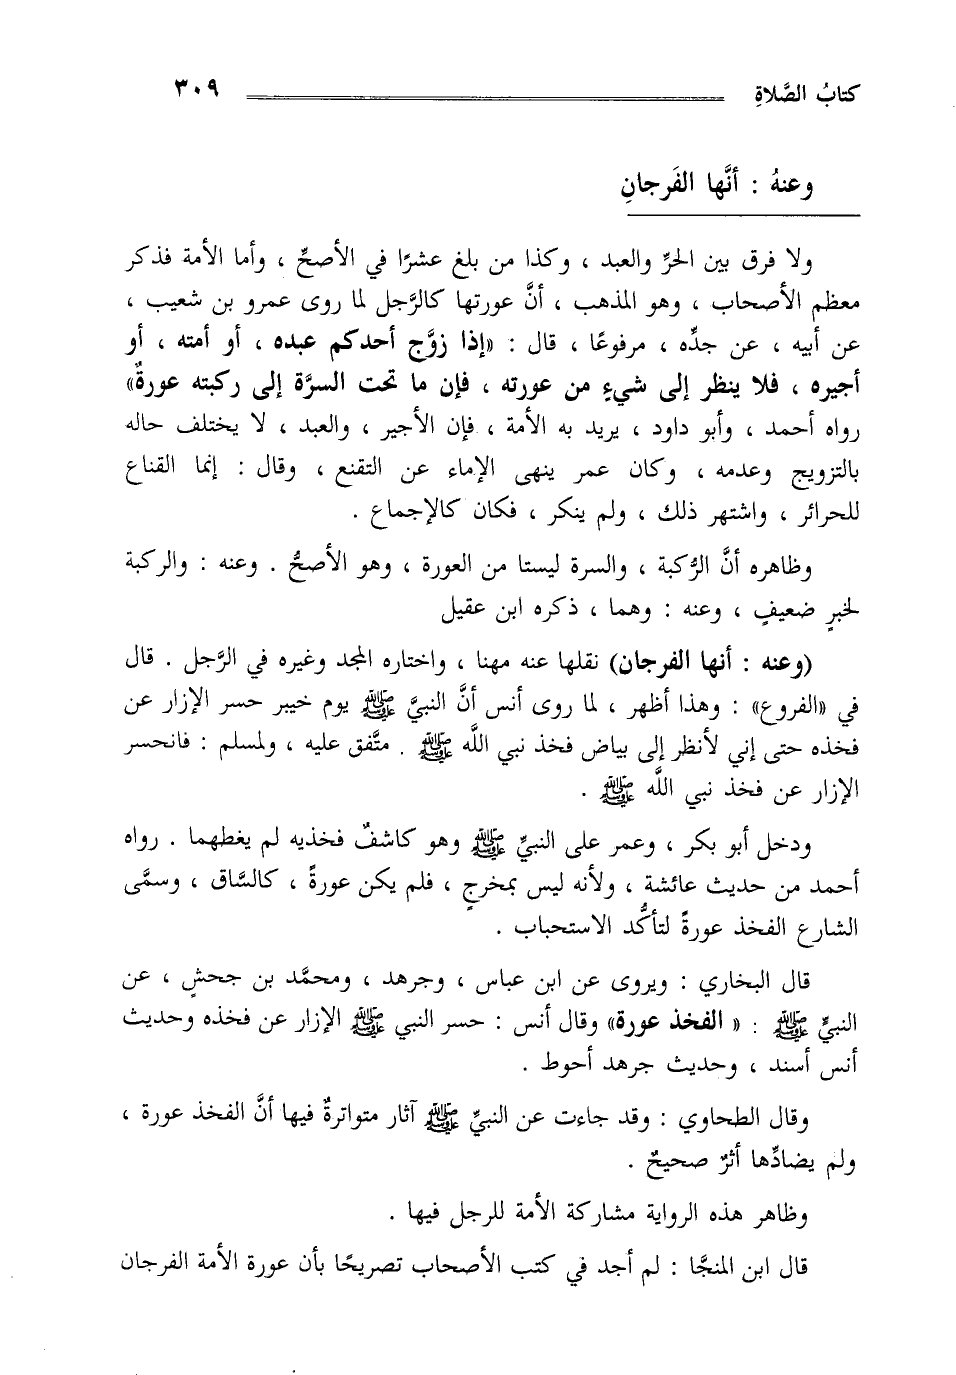 كتابُ الصَّلاةِ ٣٠٩
وعنهُ : أنَّها الفَرجانِ
ولا فرق بين الحرِّ والعبد ، وكذا من بلغ عشرًا في الأصحِّ ، وأما الأمة فذكر
معظم الأصحاب ، وهو المذهب ، أنَّ عورتها كالرَّجل لما روى عمرو بن شعيب ،
عن أبيه ، عن جدِّه ، مرفوعًا ، قال : «إذا زوَّج أحدكم عبده ، أو أمته ، أو
أجيره ، فلا ينظر إلى شيءٍ من عورته ، فإن ما تحت السرَّة إلى ركبته عورةٌ»
رواه أحمد ، وأبو داود ، يريد به الأمة ، فإن الأجير ، والعبد ، لا يختلف حاله
بالتزويج وعدمه ، وكان عمر ينهى الإماء عن التقنع ، وقال : إنما القناع
للحرائر ، واشتهر ذلك ، ولم ينكر ، فكان كالإجماع .
وظاهره أنَّ الرُّكبة ، والسرة ليستا من العورة ، وهو الأصحُّ . وعنه : والركبة
لخبرٍ ضعيفٍ ، وعنه : وهما ، ذكره ابن عقيل
(وعنه : أنها الفرجان) نقلها عنه مهنا ، واختاره المجد وغيره في الرَّجل . قال
في «الفروع» : وهذا أظهر ، لما روى أنس أنَّ النبيَّ ﷺ يوم خيبر حسر الإزار عن
فخذه حتى إني لأنظر إلى بياض فخذ نبي اللَّه ﷺ . متَّفق عليه ، ولمسلم : فانحسر
الإزار عن فخذ نبي اللَّه ﷺ .
ودخل أبو بكر ، وعمر على النبيِّ ﷺ وهو كاشفٌ فخذيه لم يغطهما . رواه
أحمد من حديث عائشة ، ولأنه ليس بمخرجٍ ، فلم يكن عورةً ، كالسَّاق ، وسمَّى
الشارع الفخذ عورةً لتأكُّد الاستحباب .
قال البخاري : ويروى عن ابن عباس ، وجرهد ، ومحمَّد بن جحشٍ ، عن
النبيِّ ﷺ : « الفخذ عورة» وقال أنس : حسر النبي ﷺ الإزار عن فخذه وحديث
أنس أسند ، وحديث جرهد أحوط .
وقال الطحاوي : وقد جاءت عن النبيِّ ﷺ آثار متواترةٌ فيها أنَّ الفخذ عورة ،
ولم يضادِّها أثرٌ صحيحٌ .
وظاهر هذه الرواية مشاركة الأمة للرجل فيها .
قال ابن المنجَّا : لم أجد في كتب الأصحاب تصريحًا بأن عورة الأمة الفرجان